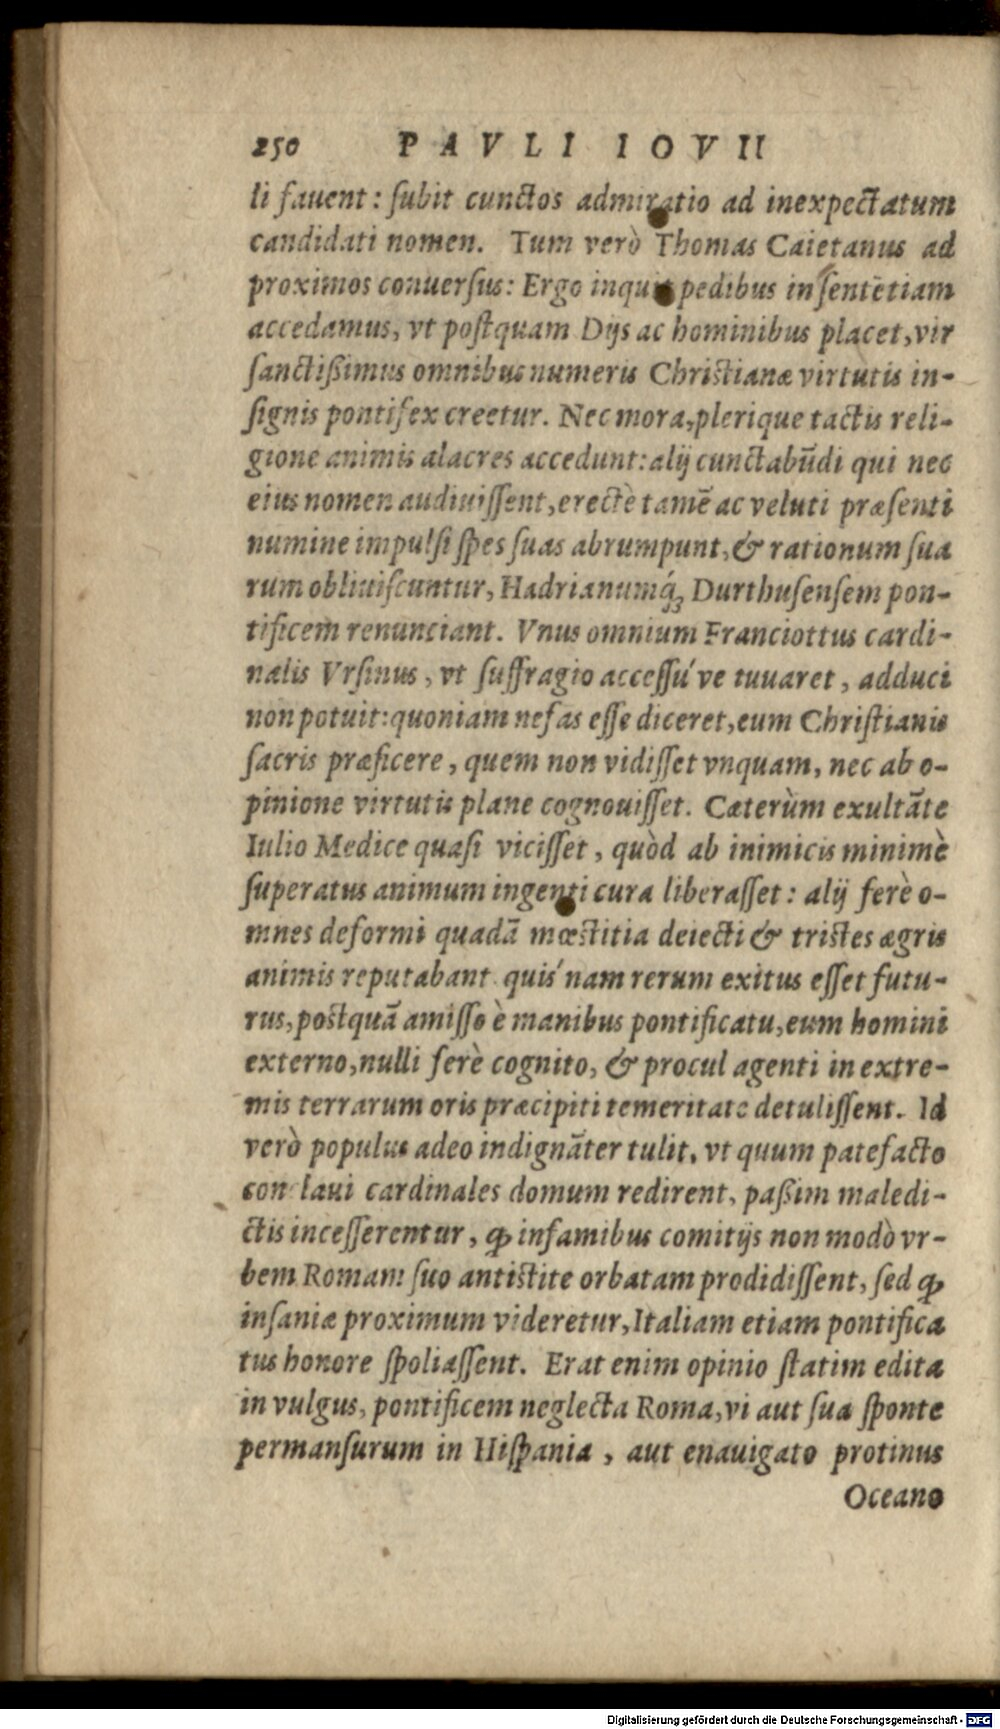 250 PAVLI IOVII
li fauent: ſubit cunctos admiratio ad inexpectatum
candidati nomen. Tum verò Thomas Caietanus ad
proximos conuerſus: Ergo inquit pedibus in ſentētiam
accedamus, vt poſtquam Dijs ac hominibus placet, vir
ſanctißimus omnibus numeris Christianæ virtutis in-
ſignis pontifex creetur. Nec mora, plerique tactis reli-
gione animis alacres accedunt: alij cunctabūdi qui nec
eius nomen audiuiſſent, erectè tamē ac veluti præſenti
numine impulſi ſpes ſuas abrumpunt, & rationum ſua
rum obliuiſcuntur, Hadrianumq́ꝫ Durthuſenſem pon-
tificem renunciant. Vnus omnium Franciottus cardi-
nalis Vrſinus, vt ſuffragio acceſſú ve iuuaret, adduci
non potuit: quoniam nefas eſſe diceret, eum Chriſtianis
ſacris præficere, quem non vidiſſet vnquam, nec ab o-
pinione virtutis plane cognouiſſet. Cæterùm exultāte
Iulio Medice quaſi viciſſet, quòd ab inimicis minimè
ſuperatus animum ingenti cura liberaſſet: alij ferè o-
mnes deformi quadā mœstitia deiecti & tristes ægris
animis reputabant quis'nam rerum exitus eſſet futu-
rus, postquā amiſſo è manibus pontificatu, eum homini
externo, nulli ferè cognito, & procul agenti in extre-
mis terrarum oris præcipiti temeritate detuliſſent. Id
verò populus adeo indignāter tulit, vt quum patefacto
conclaui cardinales domum redirent, paßim maledi-
ctis inceſſerentur, ꝙ infamibus comitijs non modò vr-
bem Romam ſuo antistite orbatam prodidiſſent, ſed ꝙ
inſaniæ proximum videretur, Italiam etiam pontifica
tus honore ſpoliaſſent. Erat enim opinio ſtatim edita
in vulgus, pontificem neglecta Roma, vi aut ſua ſponte
permanſurum in Hiſpania, aut enauigato protinus
Oceano
Digitalisierung gefördert durch die Deutsche Forschungsgemeinschaft - DFG